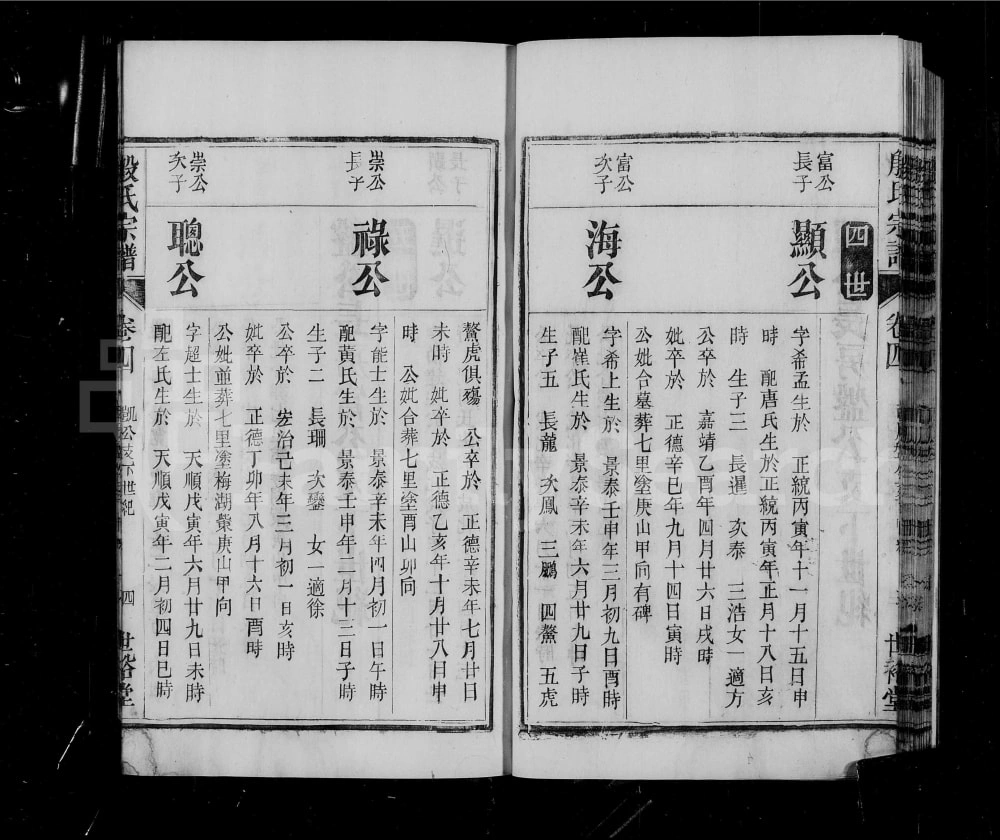 四世
富公
長子
顯公
字希孟生於　正統丙寅年十一月十五日申
時　配唐氏生於正統丙寅年正月十八日亥
時　生子三　長暹　次泰　三浩女一適方
公卒於　嘉靖乙酉年四月廿六日戌時
妣卒於　正德辛巳年九月十四日寅時
公妣合墓葬七里塗庚山甲向有碑
富公
次子
海公
字希上生於　景泰壬申年三月初九日酉時
配崔氏生於　景泰辛未年六月廿九日子時
生子五　長龍　次鳳　三鵬　四鰲　五虎
鰲虎俱殤　公卒於　正德辛未年七月廿日
未時　妣卒於　正德乙亥年十月廿八日申
時　公妣合葬七里塗酉山卯向
崇公
長子
祿公
字能士生於　景泰辛未年四月初一日午時
配黃氏生於　景泰壬申年二月十三日子時
生子二　長珊　次鑾　女一適徐
公卒於　宏治己未年三月初一日亥時
妣卒於　正德丁卯年八月十六日酉時
公妣並葬七里塗梅湖欒庚山甲向
崇公
次子
聰公
字超士生於　天順戊寅年六月廿九日未時
配左氏生於　天順戊寅年二月初四日巳時
殷氏宗譜
卷四
凱公支下世紀
四
世裕堂